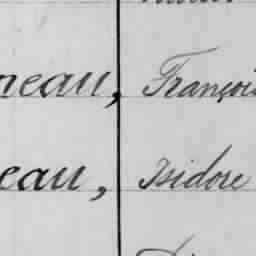 neau, Françoi
eau, Isidore